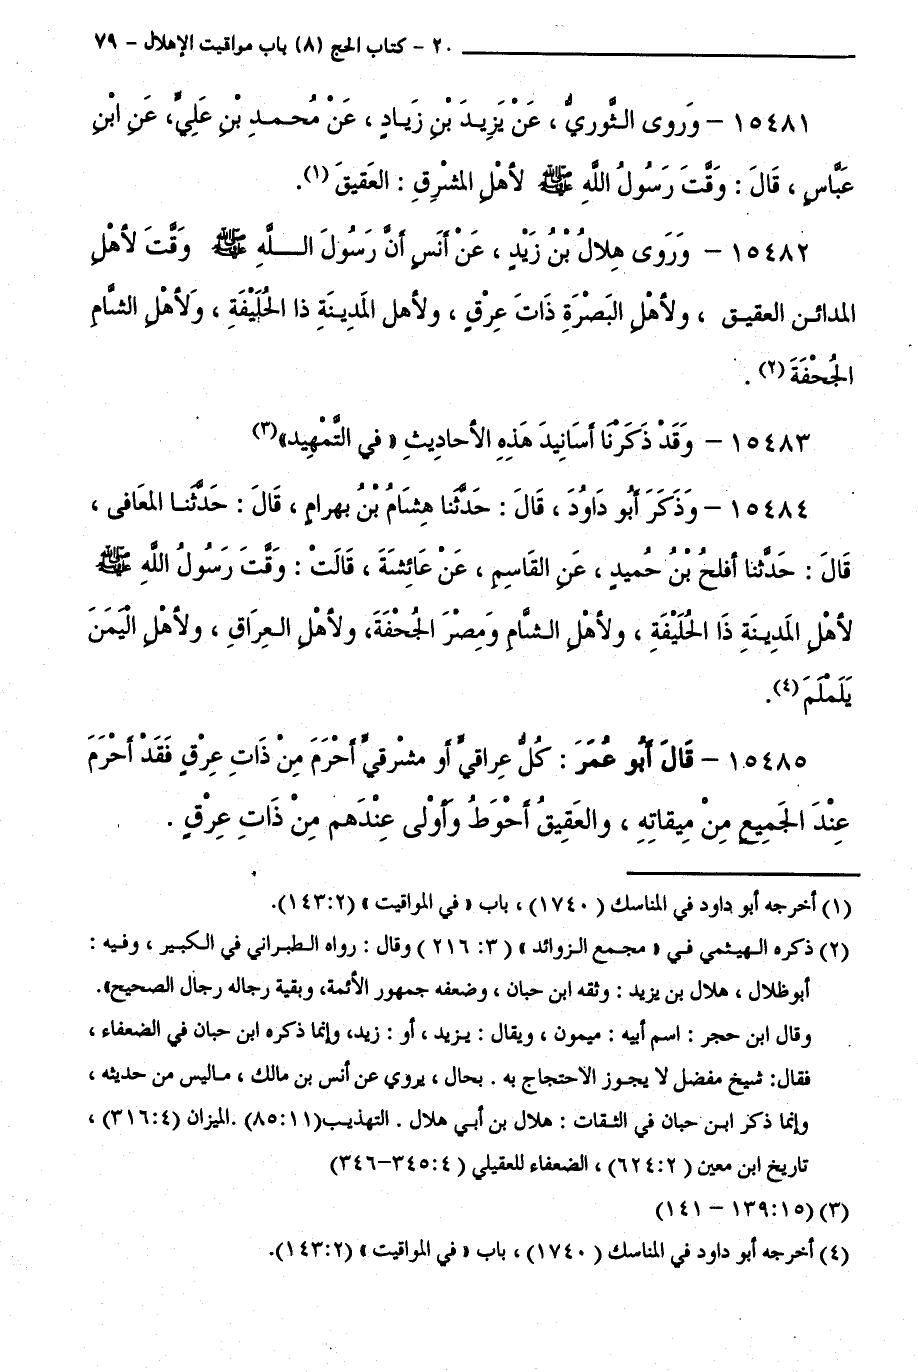 ٢٠ - كتاب الحج (٨) باب مواقيت الإهلال - ٧٩
١٥٤٨١ - وَروى الثَّوريُّ ، عَنْ يَزِيدَ بْنِ زَيَادٍ ، عَنْ مُحمدِ بْنِ عَلِيٍّ، عَنِ ابْنِ
عَبَّاسٍ ، قَالَ : وَقَّتَ رَسُولُ اللَّهِ ﷺ لأهْلِ المشْرِقِ : العَقيقَ (١).
١٥٤٨٢ - وَرَوى هِلالُ بْنُ زَيْدٍ ، عَنْ أنَسٍ أنَّ رَسُولَ اللَّهِ ﷺ وَقَّتَ لأهْلِ
المدائن العقيق ، ولأهْلِ البَصْرَةِ ذَاتَ عِرْقٍ ، ولأهل المَدِينَةِ ذا الحُلَيْفَةِ ، وَلأهْلِ الشَّامِ
الجُحْفَةَ (٢) .
١٥٤٨٣ - وَقَدْ ذَكَرْنَا أسَانِيدَ هَذِهِ الأحادِيثِ « في التَّمْهِيد» (٣)
١٥٤٨٤ - وَذَكَرَ أبُو دَاوُدَ ، قَالَ : حَدَّثَنا هِشَامُ بْنُ بهرامٍ ، قَالَ : حَدَّثَنا المعَافى ،
قَالَ : حَدَّثنا أفلحُ بْنُ حُميدٍ ، عَنِ القَاسِمِ ، عَنْ عَائِشَةَ ، قَالَتْ : وَقَّتَ رَسُولُ اللَّهِ ﷺ
لأهْلِ المَدِينَةِ ذَا الحُلَيْفَةِ ، ولأهْلِ الشَّامِ وَمِصْرَ الجُحْفَةَ، ولأهْلِ العِرَاقِ ، ولأهْلِ الْيَمَنَ
يَلَمْلَمَ (٤).
١٥٤٨٥ - قَالَ أَبُو عُمَرَ : كُلُّ عِراقيٍّ أو مشْرقيٍّ أحْرَمَ مِنْ ذَاتِ عِرْقٍ فَقَدْ أحْرَمَ
عِنْدَ الجَميعِ مِنْ مِيقاتِهِ ، والعَقِيقُ أحْوَطُ وَأَوْلى عِنْدَهم مِنْ ذَاتِ عِرْقٍ .
(١) أخرجه أبو داود في المناسك ( ١٧٤٠) ، باب « في المواقيت » (١٤٣:٢).
(٢) ذكره الهيثمي في « مجمع الزوائد » ( ٣: ٢١٦ ) وقال : رواه الطبراني في الكبير ، وفيه :
أبوظلال ، هلال بن يزيد : وثقه ابن حبان ، وضعفه جمهور الأئمة، وبقية رجاله رجال الصحيح».
وقال ابن حجر : اسم أبيه : ميمون ، ويقال : يزيد ، أو : زيد، وإنما ذكره ابن حبان في الضعفاء ،
فقال: شيخ مفضل لا يجوز الاحتجاج به . بحال ، يروي عن أنس بن مالك ، ماليس من حديثه ،
وإنما ذكر ابن حبان في الثقات : هلال بن أبي هلال . التهذيب(٨٥:١١) .الميزان (٣١٦:٤) ،
تاريخ ابن معين ( ٦٢٤:٢) ، الضعفاء للعقيلي ( ٣٤٥:٤-٣٤٦)
(٣) (١٣٩:١٥ - ١٤١)
(٤) أخرجه أبو داود في المناسك ( ١٧٤٠) ، باب « في المواقيت » (١٤٣:٢).